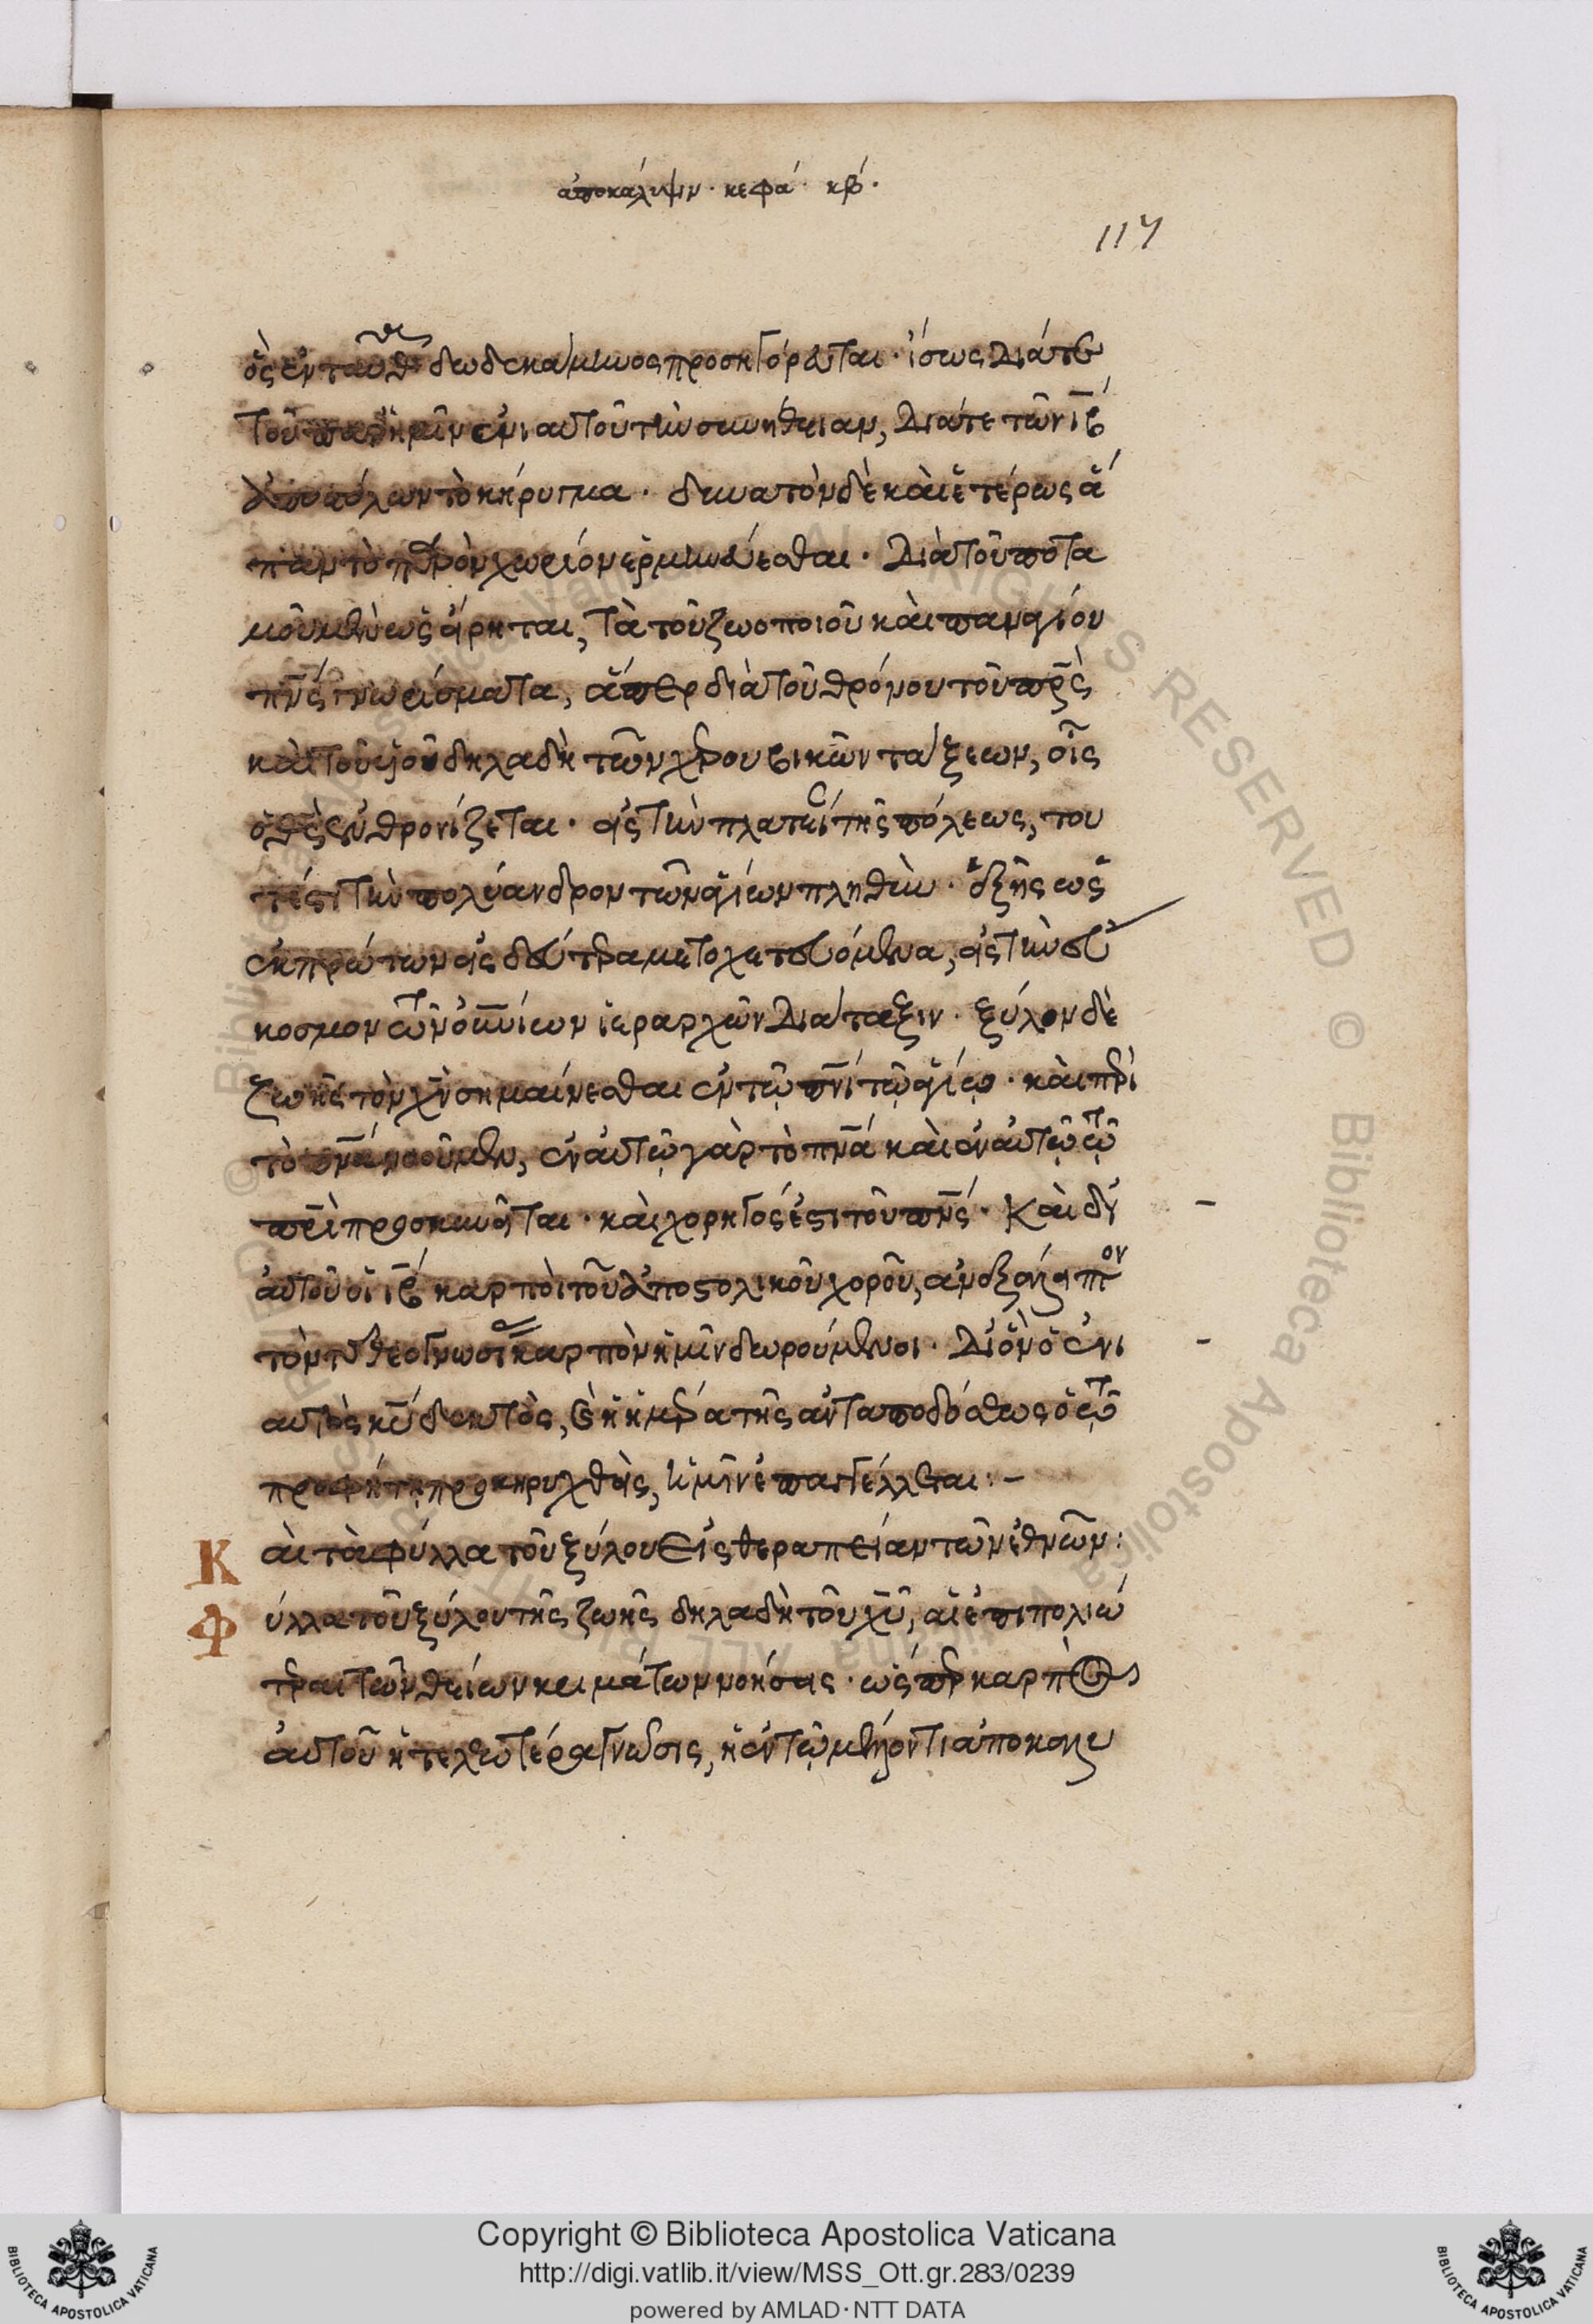 ἀποκάλυψιν · κεφά κβ ·
117
ὃς ἐνταῦθα δωδεκάμηνος προσηγόρευται · ἴσως διά τε
τοῦ παρ ἡμῖν ἐνιαυτοῦ τὴν συνήθειαν, διά τε τῶν ιβ
ἀποστόλων τὸ κήρυγμα · δυνατὸν δὲ καὶ ἑτέρως ἅ
παν τὸ παρὸν χωρίον ἑρμηνεύεσθαι · διὰ τοῦ ποτα
μοῦ μὲν ὡς εἴρηται, τὰ τοῦ ζωοποιοῦ καὶ παναγίου
πνς γνωρίσματα, ἅπερ διὰ τοῦ θρόνου τοῦ πρς
καὶ τοῦ υἱοῦ δηλαδὴ τῶν χερουβικῶν τάξεων, οἷς
ὁ θς ἐνθρονίζεται · εἰς τὴν πλατεῖ τῆς πόλεως, του
τέστι τὴν πολύανδρον τῶν ἁγίων πληθὺν · ὁδξῆς ὡς
ἐκ πρώτων εἰς δεύτερα μετοχετευόμενα, εἰς τὴν εὔ
κοσμον τῶν οὐνίων ἱεραρχῶν διάταξιν · ξύλον δὲ
ζωῆς τὸν χν σημαίνεσθαι ἐν τῷ πνι τῷ ἁγίῳ · καὶ περὶ
τὸ πνα νοοῦμεν, ἐν αὐτῷ γὰρ τὸ πνα καὶ ἐν αὐτῷ τῷ
πρι προσκυνεῖται · καὶ χορηγός ἐστι τοῦ πνς · Καὶ δι
αὐτοῦ οἱ ιβ καρποὶ τοῦ ἀποστολικοῦ χοροῦ, ἀνέκλειπτον
τὸν τῆς θεογνωσίας καρπὸν ἡμῖν δωρούμενοι · Δι ὃν ὁ ἐνι
αυτὸς κυ δεκτὸς, καὶ ἡ ἡμέρα τῆς ἀνταποδόσεως ὁ τῷ
προφήτῃ προκηρυχθεὶς, ἡμῖν ἐπαγγέλλεται :-
Καὶ τὰ φύλλα τοῦ ξύλου εἰς θεραπείαν τῶν ἐθνῶν :
Φύλλα τοῦ ξύλου τῆς ζωῆς δηλαδὴ τοῦ χυ, αἱ ἐπιπολαιό
τεραι τῶν θείων κριμάτων νοήσεις · ὥσπερ καρπὸς
αὐτοῦ ἡ τελεωτέρα γνῶσις, ἡ ἐν τῷ μέλλοντι ἀποκαλυ
Copyright © Biblioteca Apostolica Vaticana
http://digi.vatlib.it/view/MSS_Ott.gr.283/0239
powered by AMLAD·NTT DATA